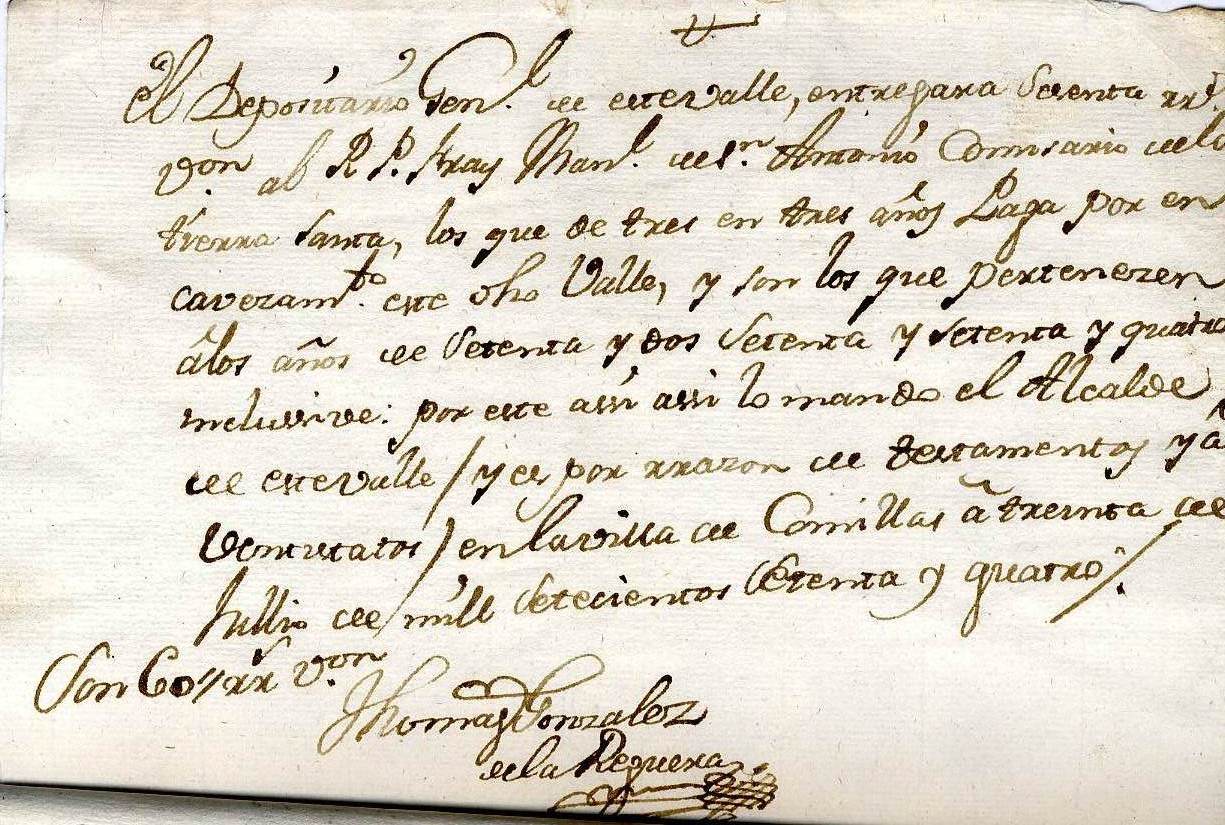 El Depositario Gen.l de este Valle, entregara Sesenta rr.s
von al R P. Fray Man.l de S.n Antonio Comisario de la
tierra santa, los que de tres en tres años Paga por en
cavezam.to este dho Valle, y son los que pertenezen
â los años de Setenta y dos Setenta y setenta y quatro
inclusive: por este assi assi lo mando el Alcalde
de este Valle / y es por rrazon de testamentos y a
ventestatos / en la villa de Comillas â treinta de
Jullio de mill setecientos Setenta y quatro /.
Son 60 // rr.s v.on
Thomas Gonzalez
de la Reguera